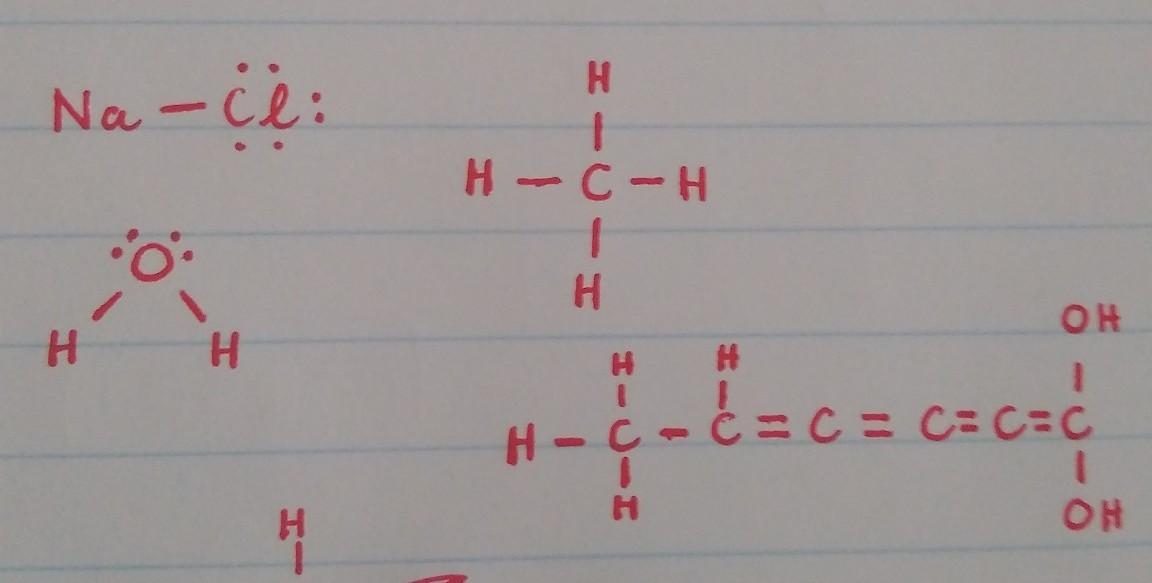 Na — Cl:
H
|
H — C — H
|
H
O
/ \
H H
OH
|
H H
| |
H - C - C = C = C = C = C
| |
H OH
H
|